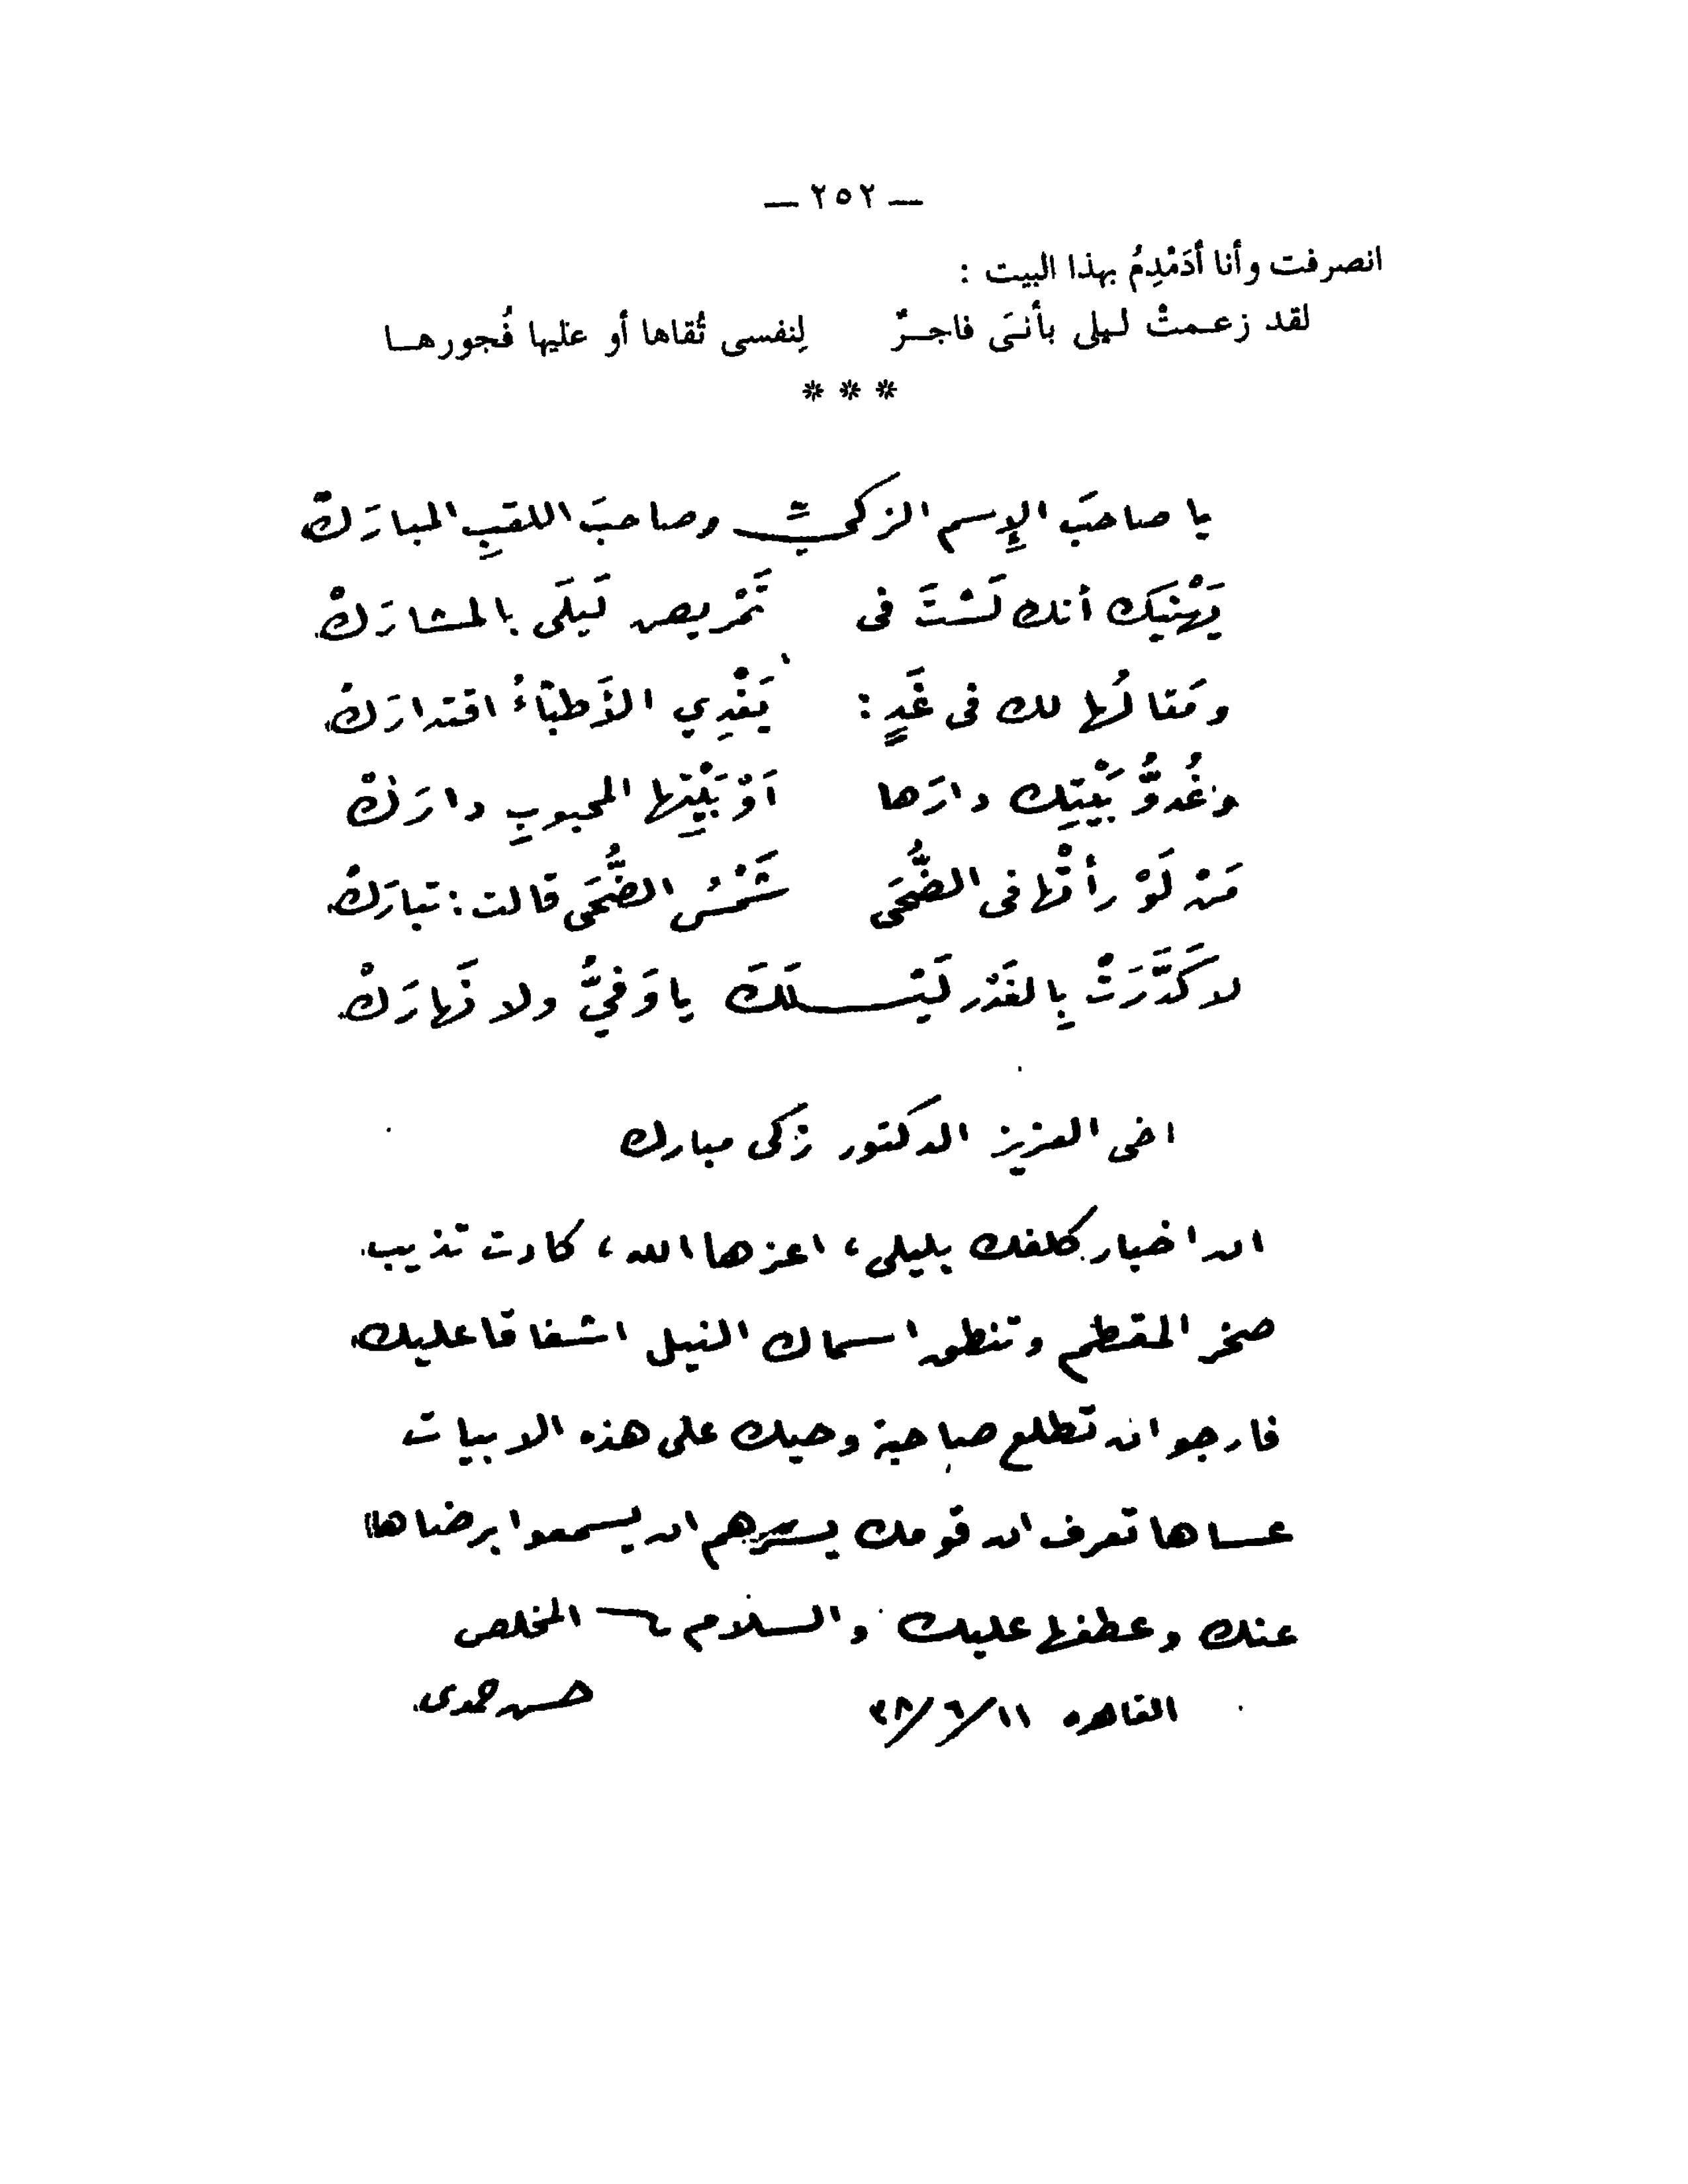 — ٢٥٢ —
انصرفت وأنا أدَمْدِمُ بهذا البيت :
لقد زعـمتْ لـيلى بأنـىَ فاجـــرٌ لِنفسى تُقاها أو عليها فُجورهــا
* * *
يا صاحبَ الإِسم الزكىِّ وصاحبَ اللقبِ المبارَكْ
يَهْنيَك أنك لَسْتَ فى تَمْريض لَيلَى بالمشارَكْ
ومَقالُها لك فى غَدٍ : يَفْدِي الأَطبّاءُ اقتدارَكْ
وغُدوُّ بَيْتِك دارَها اَوْ بَيْتِها المحبوبِ دارَكْ
مَنْ لَوْ رأتْها فى الضُّحَى شَمْسُ الضُّحَى قالت : تبارَكْ
لا كَدَّرَتْ بِالغَدْر لَيْـــلَكَ يا وَفيُّ ولا نَهارَكْ
اخى العزيز الدكتور زكى مبارك
ان اخبار كلفك بليلى ، اعزها الله ، كادت تذيب
صخر المقطم وتنطق اسماك النيل اشفاقا عليك
فارجو ان تطلع صاحبة وحيك على هذه الابيات
عساها تعرف ان قومك يسرّهم ان يسمعوا برضاها
عنك وعطفها عليك والسلام المخلص
حسن حمدى
القاهره ١١/٦/٣٨